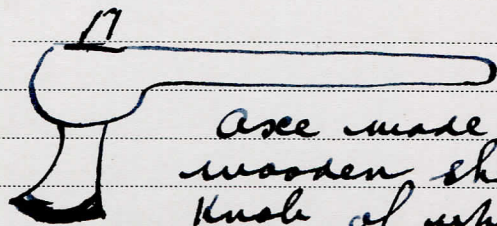 axe made
wooden sh
Knob of wh